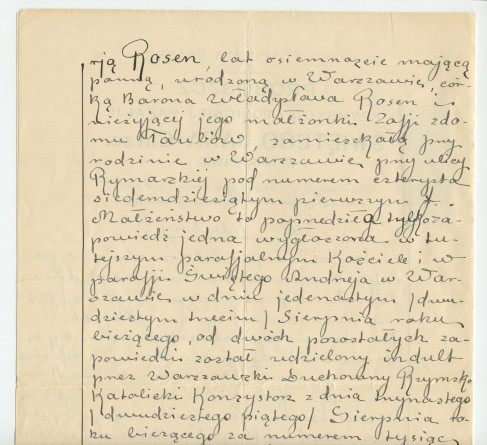 rją Rosen, lat osiemnaście mającą
panną, urodzoną w Warszawie, cór-
ką Barona Władysława Rosen i
nieżyjącej jego małżonki Zofji z do-
mu Laubów, zamieszkałą przy
rodzinie w Warszawie przy ulicy
Rymarskiej pod numerem czterysta
siedemdziesiątym pierwszym
Małżeństwo to poprzedziła tylko za-
powiedź jedna wygłoszona w tu-
tejszym parafjalnym Kościele i w
parafji Świętego Andrzeja w War-
szawie w dniu jedenastym /dwu-
dziestym trzecim/ Sierpnia roku
bieżącego, od dwóch pozostałych za-
powiedzi został udzielony indult
przez Warszawski Duchowny Rzymsko-
Katolicki Konsystorz z dnia trzynastego
/dwudziestego piątego/ Sierpnia ro-
ku bieżącego za numerem tysiąc